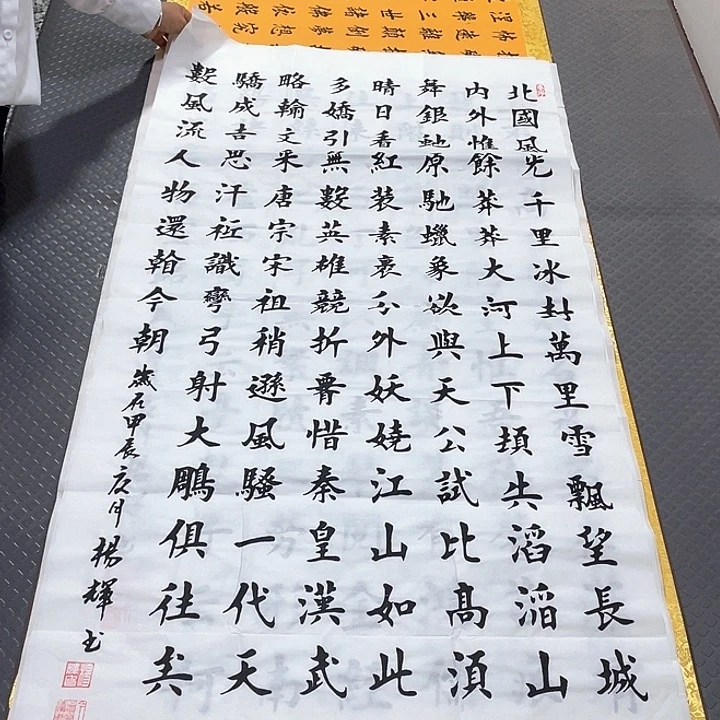 北國風光千里冰封萬里雪飄望長城
內外惟餘莽莽大河上下頓失滔滔山
舞銀蛇原馳蠟象欲與天公試比高須
晴日看紅裝素裹分外妖嬈江山如此
多嬌引無數英雄競折腰惜秦皇漢武
略輸文采唐宗宋祖稍遜風騷一代天
驕成吉思汗祗識彎弓射大鵰俱往矣
數風流人物還看今朝
歲在甲辰月楊輝书